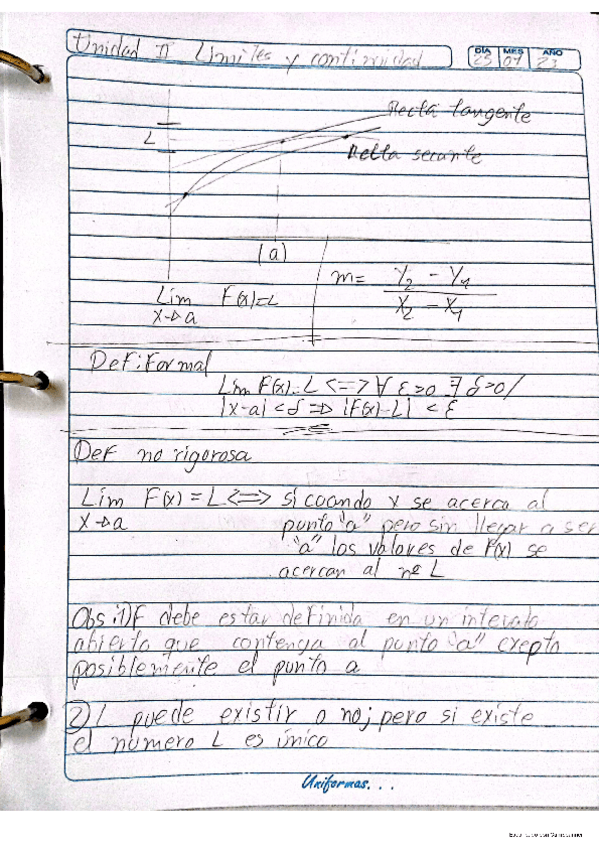 Unidad II Limites y continuidad
DÍA MES AÑO
25 07 23
Recta tangente
L
Recta secante
(a)
Lim F(x)=L
x→a
m= Y₂ - Y₁
X₂ - X₁
Def: Formal
Lim F(x)=L <=> ∀ ε>0 ∃ δ>0/
|x-a|<δ => |F(x)-L| < ε
Def no rigorosa
Lim F(x) = L <=> si cuando x se acerca al
x→a punto "a" pero sin llegar a ser
"a" los valores de F(x) se
acercan al nº L
Obs: 1) F debe estar definida en un intervalo
abierto que contenga al punto "a" exepto
posiblemente el punto a
2) L puede existir o no; pero si existe
el numero L es único
Uniformas...